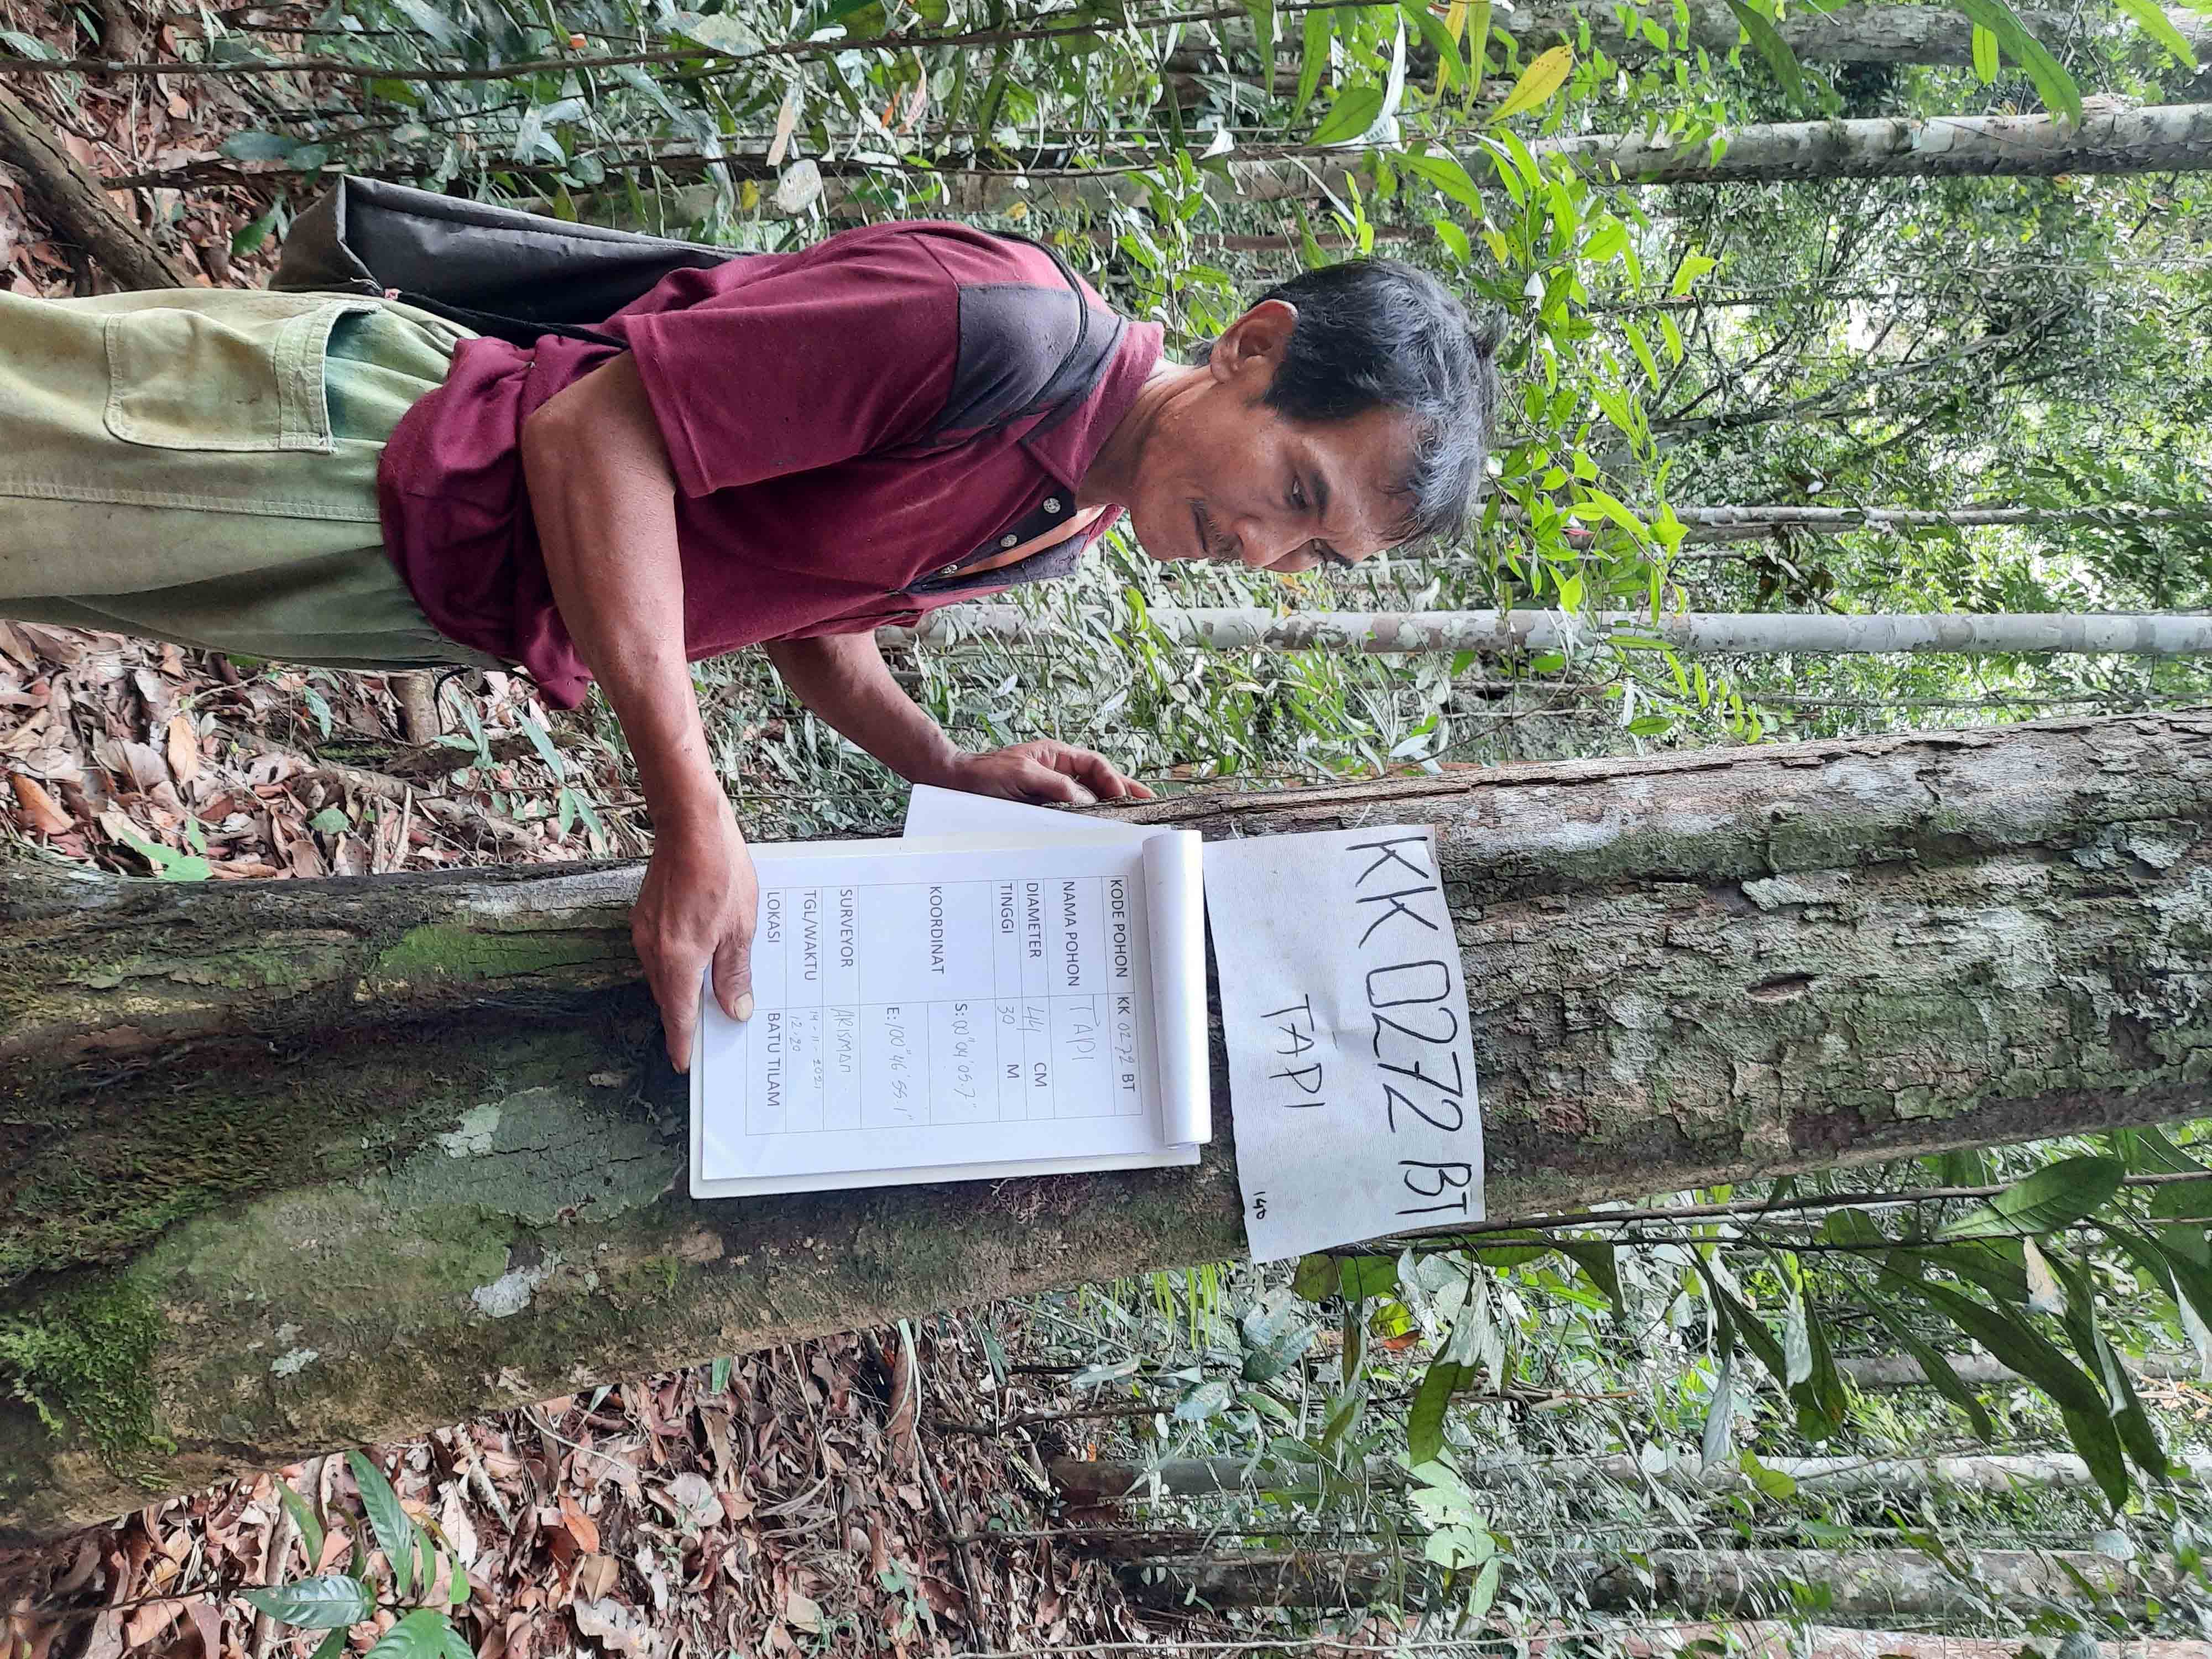 KK 0272 BT
TAPI
140
KODE POHON KK 0272 BT
NAMA POHON TAPI
DIAMETER 44 CM
TINGGI 30 M
KOORDINAT S: 00° 04' 05.7"
E: 100° 46' 55.1"
SURVEYOR ARISMAN
TGL/WAKTU 14-11-2021
12.20
LOKASI BATU TILAM